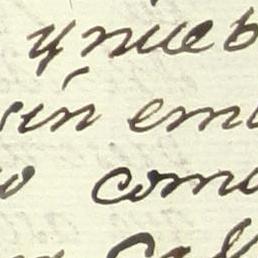 y nueb
sin em
o como